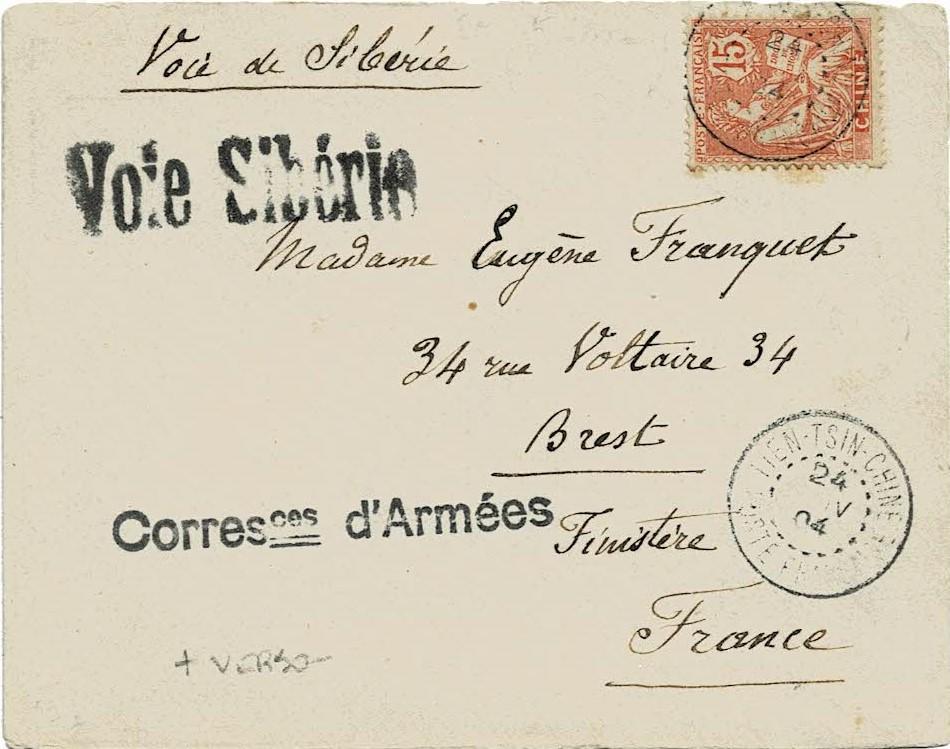 Voie de Sibérie
POSTE FRANÇAISE
15
CHINE
24
Voie Sibérie
Madame Eugène Franquet
34 rue Voltaire 34
Brest
TIEN-TSIN-CHINE
24
V
04
Corresces d'Armées
Finistère
France
+ VERSO